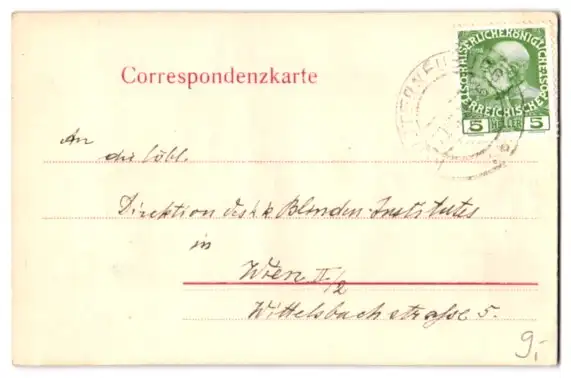 KAISERLICHE KÖNIGLICHE
ÖSTERREICHISCHE POST
5 HELLER 5
Correspondenzkarte
An
die löbl.
Direktion des k.k. Blinden-Institutes
in
Wien II/2
Wittelsbachstraße 5.
9,-